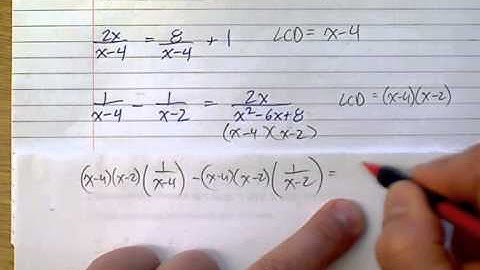 2x/(x-4) = 8/(x-4) + 1 LCD = x-4
1/(x-4) - 1/(x-2) = 2x/(x²-6x+8) LCD = (x-4)(x-2)
(x-4)(x-2)
(x-4)(x-2)(1/(x-4)) - (x-4)(x-2)(1/(x-2)) =